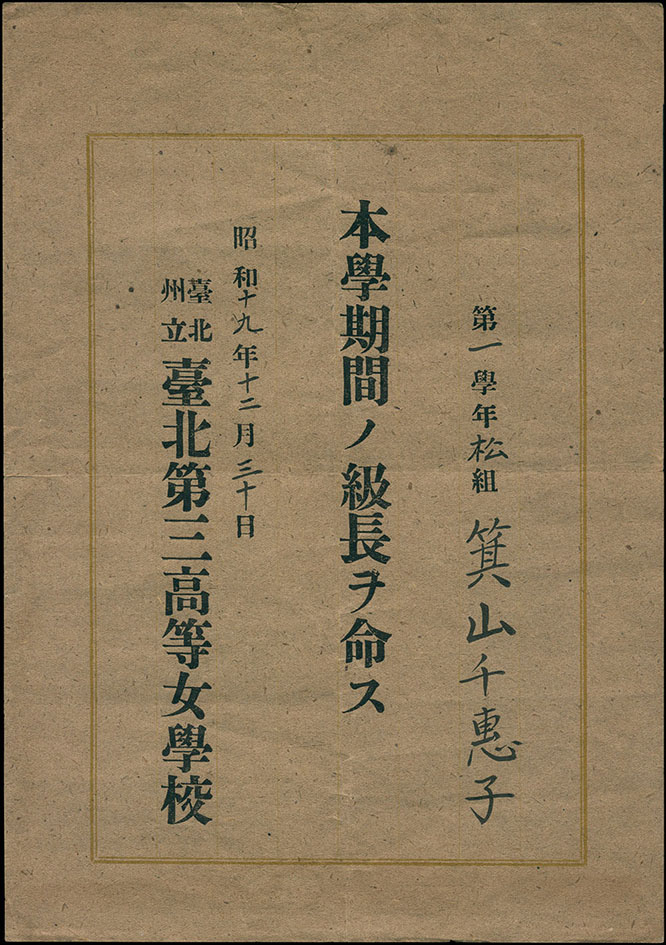 第一學年松組 箕山千惠子
本學期間ノ級長ヲ命ス
昭和十九年十二月三十日
臺北州立臺北第三高等女學校